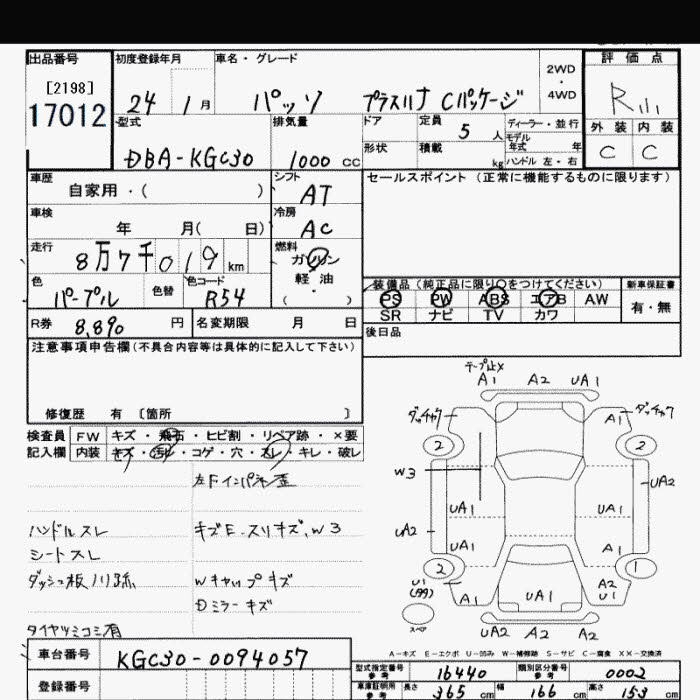 出品番号 初度登録年月 車名・グレード 2WD・4WD 評価点
[2198]
17012
24 1月 パッソ プラスハナ Cパッケージ R
型式 排気量 ドア 定員 5人 ディーラー・並行 外装 内装
モデル年式 年
DBA-KGC30 1000cc 形状 積載 kg ハンドル 左・右 C C
車歴 シフト セールスポイント(正常に機能するものに限ります)
自家用・( ) AT
車検 冷房
年 月( 日) AC
走行 燃料
8万7千019km ガソリン
軽・油
( )
色 色替 色コード 装備品(純正品に限り○をつけてください) 新車保証書
パープル R54 PS PW ABS エアB AW 有・無
SR ナビ TV カワ
R券 8,890円 名変期限 月 日 後日品
注意事項申告欄(不具合内容等は具体的に記入して下さい)
修復歴 有 〔箇所 〕
検査員 FW キズ・飛石・ヒビ割・リペア跡・×要
記入欄 内装 キズ・汚レ・コゲ・穴・スレ・キレ・破レ
左Fインパネ歪
ハンドルスレ キズE.スリキズ,W3
シートスレ
ダッシュ板ハリ跡 Wキャップキズ
Dミラーキズ
タイヤツミコミ有
テープ止×
A1 A2 UA1
A1
2 2
W3 UA2
UA1 UA1
UA2
UA1 A1
2 1
U1 A2
A1 UA1 U1
スペア
UA2 A2 A2
A-キズ E-エクボ U-凹み W-補修跡 S-サビ C-腐食 XX-交換済
車台番号 KGC30-0094057
型式指定番号 16440 類別区分番号 0002
登録番号
車庫証明用参考 長さ 365cm 幅 166cm 高さ 153cm